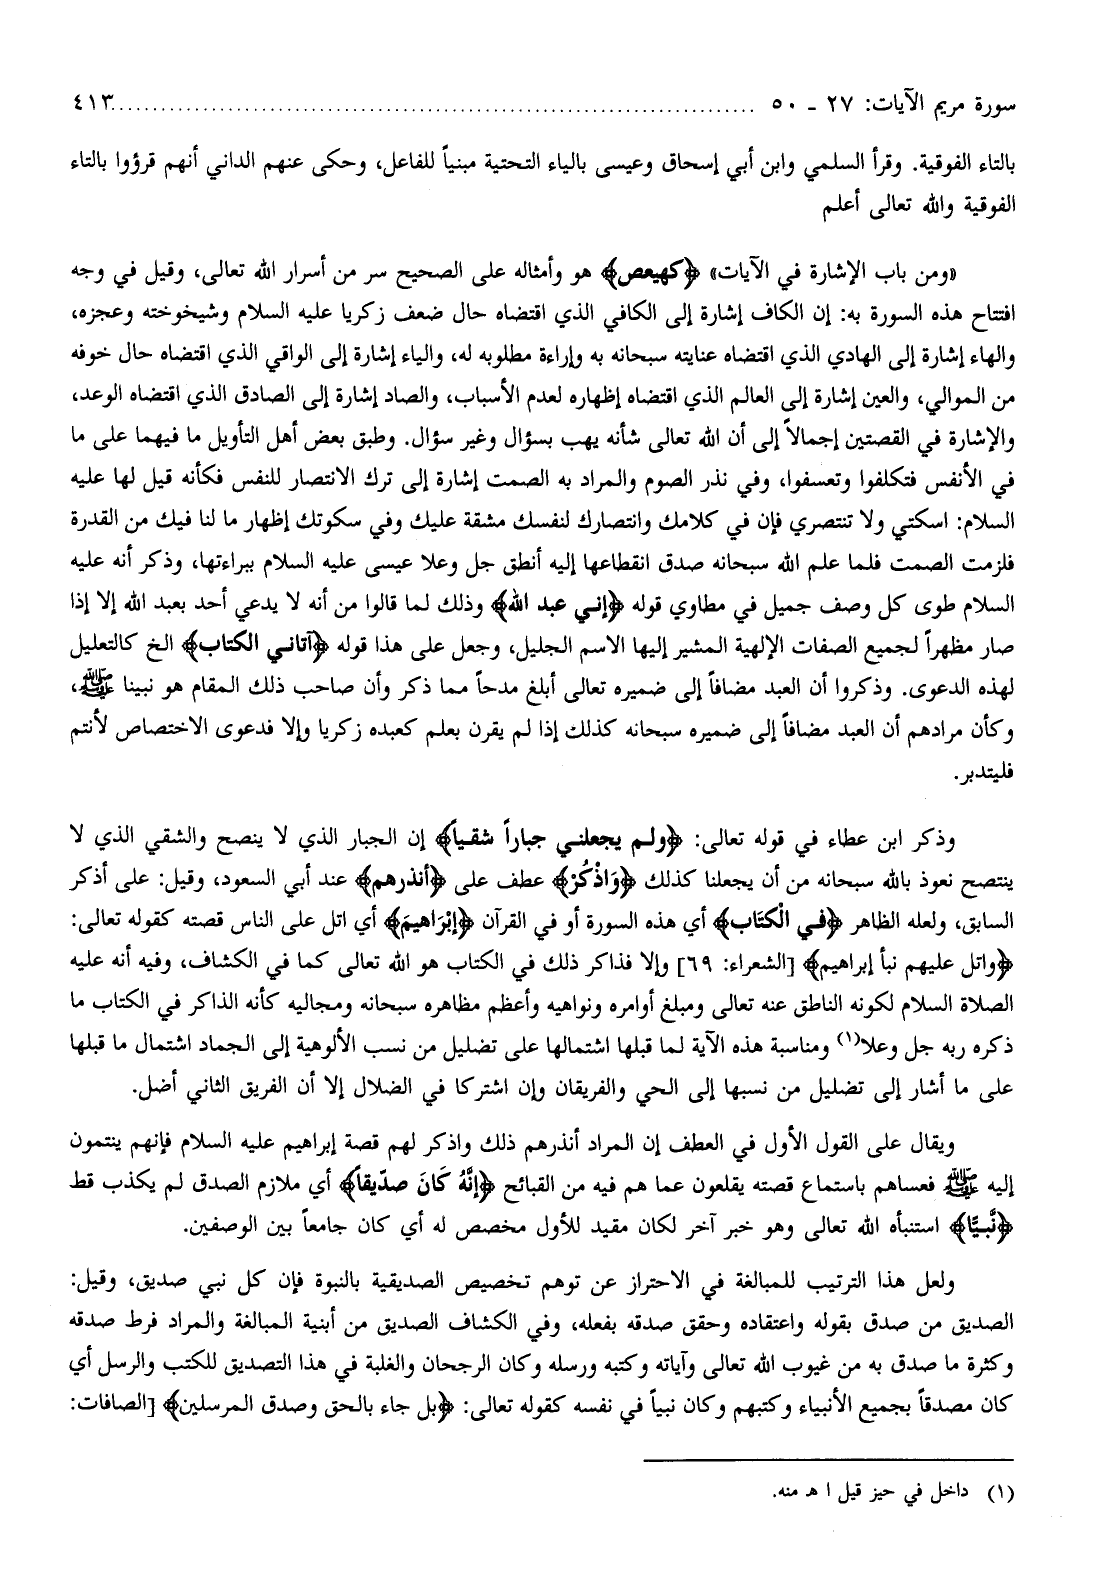 سورة مريم الآيات: ٢٧ ـ ٥٠ ................................................ ٤١٣
بالتاء الفوقية. وقرأ السلمي وابن أبي إسحاق وعيسى بالياء التحتية مبنياً للفاعل، وحكى عنهم الداني أنهم قرؤوا بالتاء
الفوقية والله تعالى أعلم
«ومن باب الإشارة في الآيات» ﴿كهيعص﴾ هو وأمثاله على الصحيح سر من أسرار الله تعالى، وقيل في وجه
افتتاح هذه السورة به: إن الكاف إشارة إلى الكافي الذي اقتضاه حال ضعف زكريا عليه السلام وشيخوخته وعجزه،
والهاء إشارة إلى الهادي الذي اقتضاه عنايته سبحانه به وإراءة مطلوبه له، والياء إشارة إلى الواقي الذي اقتضاه حال خوفه
من الموالي، والعين إشارة إلى العالم الذي اقتضاه إظهاره لعدم الأسباب، والصاد إشارة إلى الصادق الذي اقتضاه الوعد،
والإشارة في القصتين إجمالاً إلى أن الله تعالى شأنه يهب بسؤال وغير سؤال. وطبق بعض أهل التأويل ما فيهما على ما
في الأنفس فتكلفوا وتعسفوا، وفي نذر الصوم والمراد به الصمت إشارة إلى ترك الانتصار للنفس فكأنه قيل لها عليه
السلام: اسكتي ولا تنتصري فإن في كلامك وانتصارك لنفسك مشقة عليك وفي سكوتك إظهار ما لنا فيك من القدرة
فلزمت الصمت فلما علم الله سبحانه صدق انقطاعها إليه أنطق جل وعلا عيسى عليه السلام ببراءتها، وذكر أنه عليه
السلام طوى كل وصف جميل في مطاوي قوله ﴿إني عبد الله﴾ وذلك لما قالوا من أنه لا يدعي أحد بعبد الله إلا إذا
صار مظهراً لجميع الصفات الإلهية المشير إليها الاسم الجليل، وجعل على هذا قوله ﴿آتاني الكتاب﴾ الخ كالتعليل
لهذه الدعوى. وذكروا أن العبد مضافاً إلى ضميره تعالى أبلغ مدحاً مما ذكر وأن صاحب ذلك المقام هو نبينا ﷺ،
وكأن مرادهم أن العبد مضافاً إلى ضميره سبحانه كذلك إذا لم يقرن بعلم كعبده زكريا وإلا فدعوى الاختصاص لأنتم
فليتدبر.
وذكر ابن عطاء في قوله تعالى: ﴿ولم يجعلني جباراً شقياً﴾ إن الجبار الذي لا ينصح والشقي الذي لا
ينتصح نعوذ بالله سبحانه من أن يجعلنا كذلك ﴿وَاذْكُرْ﴾ عطف على ﴿أنذرهم﴾ عند أبي السعود، وقيل: على أذكر
السابق، ولعله الظاهر ﴿فِي الْكتَاب﴾ أي هذه السورة أو في القرآن ﴿إبْرَاهيمَ﴾ أي اتل على الناس قصته كقوله تعالى:
﴿واتل عليهم نبأ إبراهيم﴾ [الشعراء: ٦٩] وإلا فذاكر ذلك في الكتاب هو الله تعالى كما في الكشاف، وفيه أنه عليه
الصلاة السلام لكونه الناطق عنه تعالى ومبلغ أوامره ونواهيه وأعظم مظاهره سبحانه ومجاليه كأنه الذاكر في الكتاب ما
ذكره ربه جل وعلا(١) ومناسبة هذه الآية لما قبلها اشتمالها على تضليل من نسب الألوهية إلى الجماد اشتمال ما قبلها
على ما أشار إلى تضليل من نسبها إلى الحي والفريقان وإن اشتركا في الضلال إلا أن الفريق الثاني أضل.
ويقال على القول الأول في العطف إن المراد أنذرهم ذلك واذكر لهم قصة إبراهيم عليه السلام فإنهم ينتمون
إليه ﷺ فعساهم باستماع قصته يقلعون عما هم فيه من القبائح ﴿إنَّهُ كَانَ صدّيقاً﴾ أي ملازم الصدق لم يكذب قط
﴿نَّبيًّا﴾ استنبأه الله تعالى وهو خبر آخر لكان مقيد للأول مخصص له أي كان جامعاً بين الوصفين.
ولعل هذا الترتيب للمبالغة في الاحتراز عن توهم تخصيص الصديقية بالنبوة فإن كل نبي صديق، وقيل:
الصديق من صدق بقوله واعتقاده وحقق صدقه بفعله، وفي الكشاف الصديق من أبنية المبالغة والمراد فرط صدقه
وكثرة ما صدق به من غيوب الله تعالى وآياته وكتبه ورسله وكان الرجحان والغلبة في هذا التصديق للكتب والرسل أي
كان مصدقاً بجميع الأنبياء وكتبهم وكان نبياً في نفسه كقوله تعالى: ﴿بل جاء بالحق وصدق المرسلين﴾ [الصافات:
(١) داخل في حيز قيل ا هـ منه.